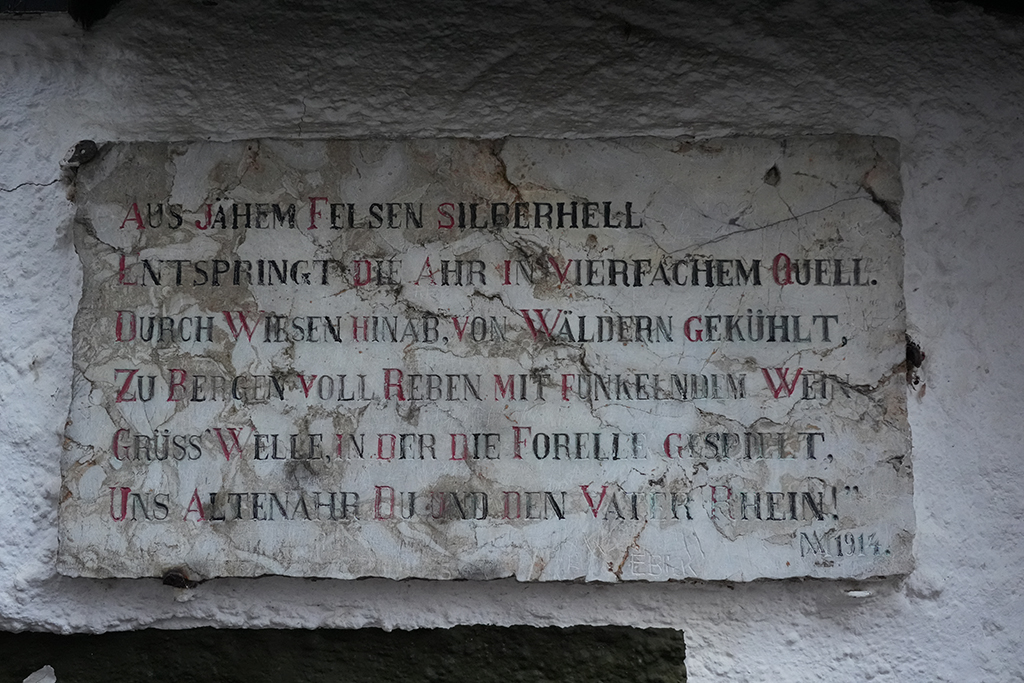 Aus Jähem Felsen Silberhell
Entspringt die Ahr in vierfachem Quell.
Durch Wiesen hinab, von Wäldern gekühlt,
Zu Bergen voll Reben mit funkelndem Wein
Grüss' Welle, in der die Forelle gespielt,
Uns Altenahr Du und den Vater Rhein!"
1914.